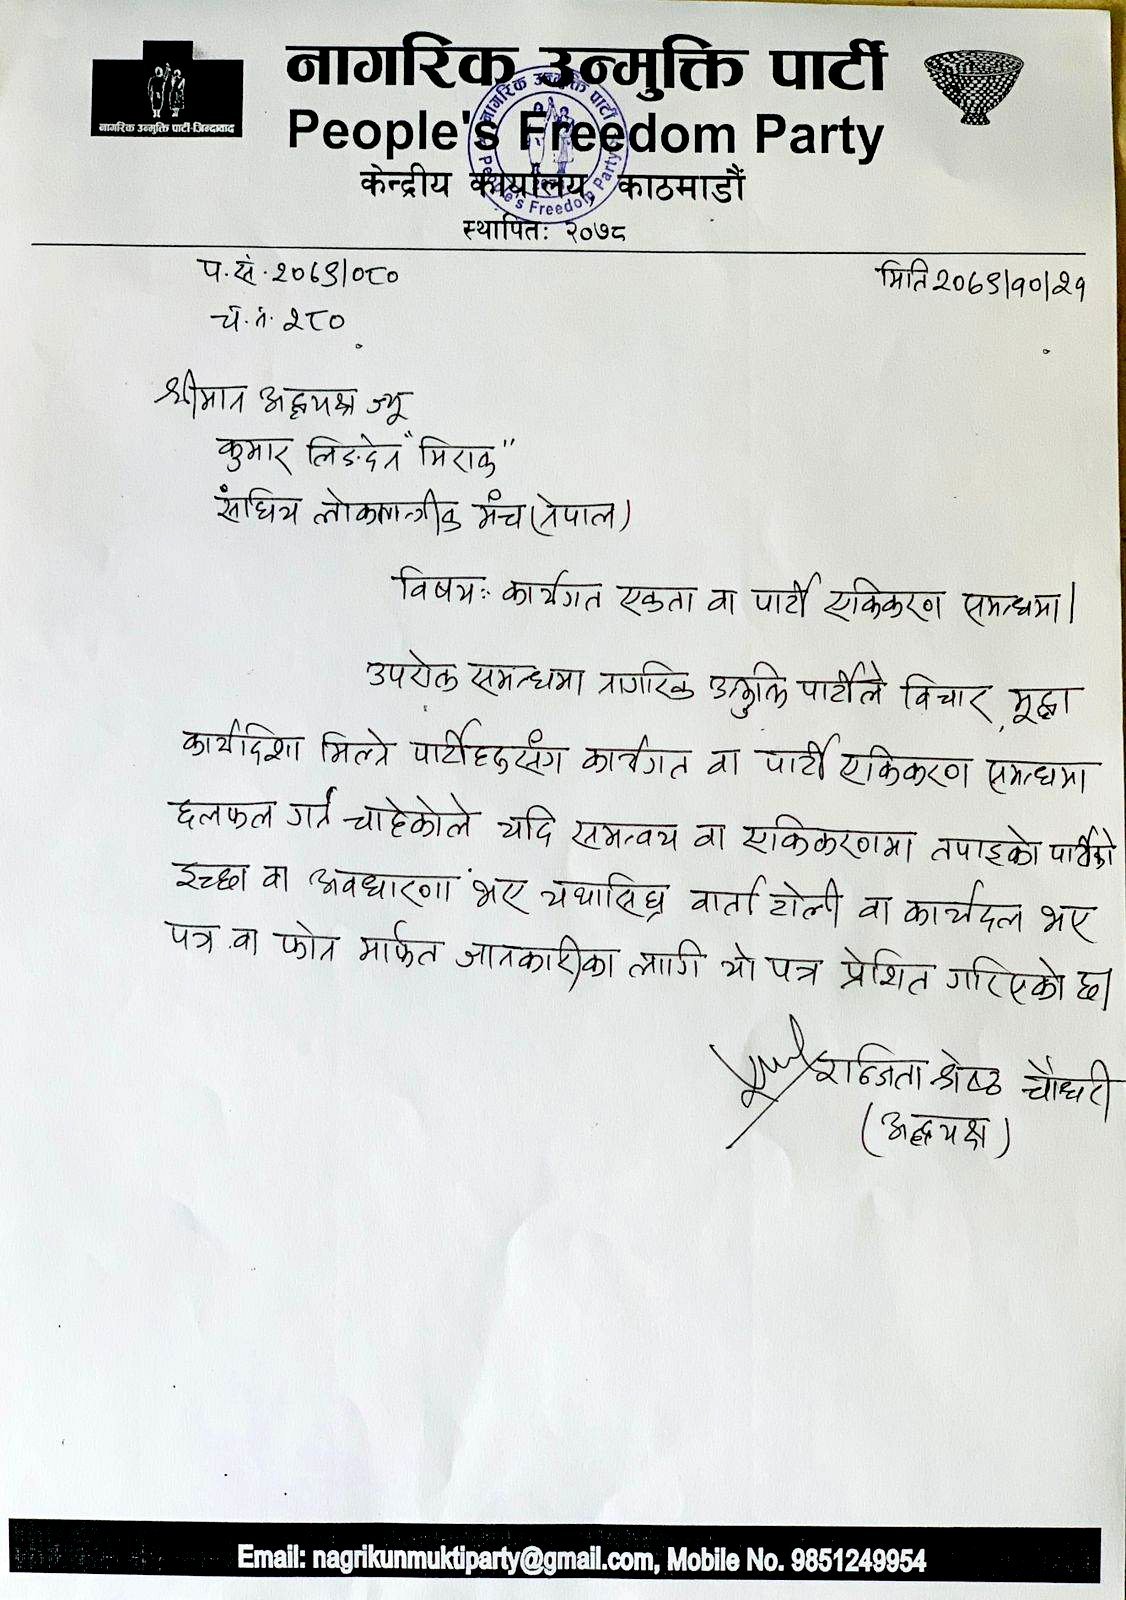 नागरिक उन्मुक्ति पार्टी-जिन्दावाद
नागरिक उन्मुक्ति पार्टी
People's Freedom Party
केन्द्रीय कार्यालय, काठमाडौं
स्थापितः २०७८
नागरिक उन्मुक्ति पार्टी
People's Freedom Party
प.सं. २०७९/०८०
मिति २०७९/१०/२१
चं.नं. २८०
श्रीमान अध्यक्ष ज्यू
कुमार लिङदेन "मिराक"
संघिय लोकतान्त्रीक मंच (नेपाल)
विषय: कार्यगत एकता वा पार्टी एकिकरण समन्धमा।
उपरोक्त समन्धमा नागरिक उन्मुक्ति पार्टीले विचार, मूद्दा
कार्यदिशा मिल्ने पार्टीहरुसंग कार्यगत वा पार्टी एकिकरण समन्धमा
छलफल गर्न चाहेकोले यदि समन्वय वा एकिकरणमा तपाइको पार्टीको
इच्छा वा अवधारणा भए यथासिघ्र वार्ता टोली वा कार्यदल भए
पत्र वा फोन मार्फत जानकारीका लागि यो पत्र प्रेशित गरिएको छ।
रान्जिता श्रेष्ठ चौधरी
(अध्यक्ष)
Email: nagrikunmuktiparty@gmail.com, Mobile No. 9851249954